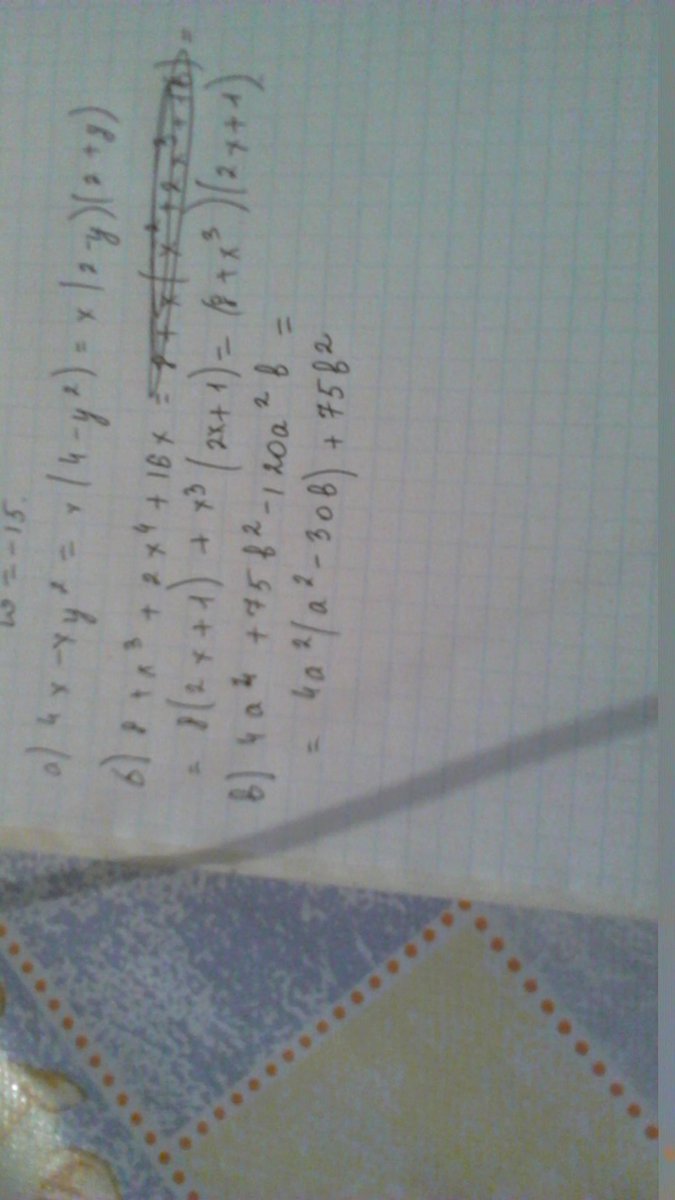 w = -15.
а) 4x - xy² = x(4-y²) = x(2-y)(2+y)
б) 8 + x³ + 2x⁴ + 16x = 8 + x(x² + 2x³ + 16) =
= 8(2x+1) + x³(2x+1) = (8 + x³)(2x+1)
в) 4a⁴ + 75b² - 120a²b =
= 4a²(a² - 30b) + 75b²